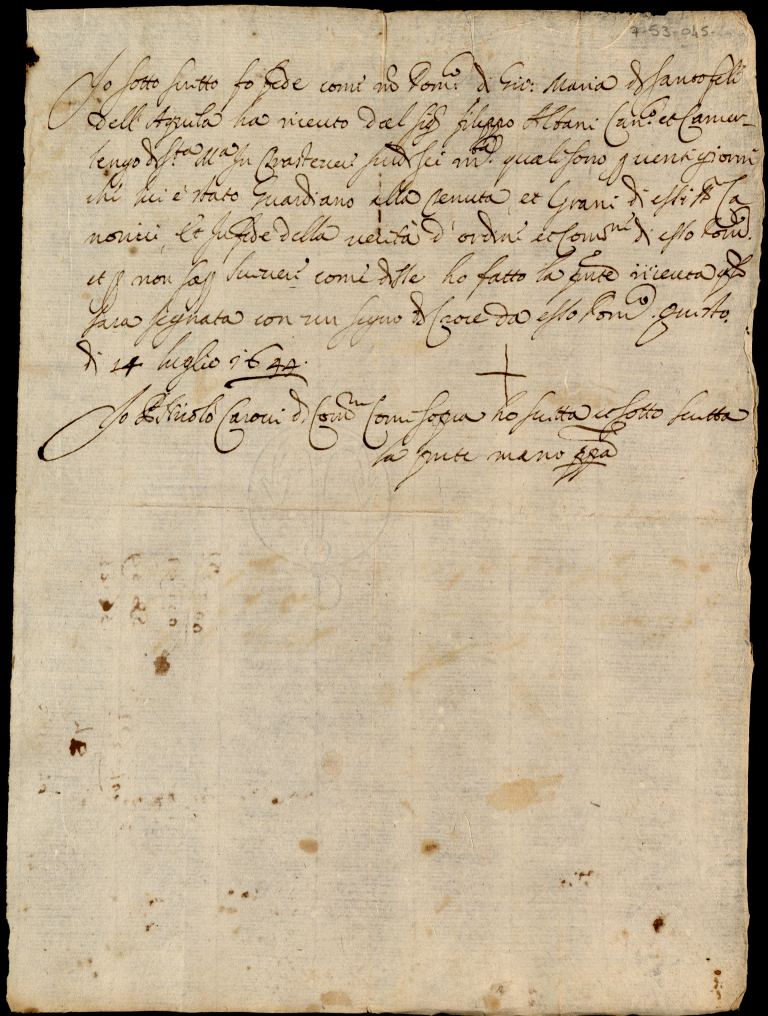 7-53-045
Io sotto scritto fo fede come m.o Dom.co di Gio: Maria di Santo feli
dell'Aquila ha riceuto dal Sig.r filippo Albani Can.co et Camer-
lengo di S.ta M.a in Trastevere scudi sei m.ta quali sono p venti giorni
che lui è stato Guardiano alla tenuta et Grani di essi ss.ri Ca
nonici, Et in fede della verità d'ordine et Com.ne di esso Dom.co
et p non sap scrivere come disse ho fatto la pnte riceuta qle
sara segnata con un segno di Croce da esso Dom.co questo
di 14 luglio 1644.
Io Nicolo Caroni di Com.ne Come sopra ho scritta et sotto scritta
la pnte mano ppa